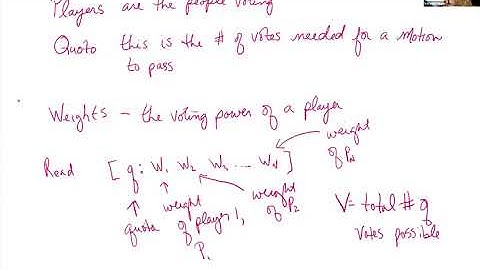 Players are the people voting
Quoto this is the # of votes needed for a motion
to pass
Weights – the voting power of a player
Read [q: W₁ W₂ W₃ .... W_N]
weight
of P_N
quota
weight
of player 1,
P₁
weight
of P₂
V = total # of
votes possible